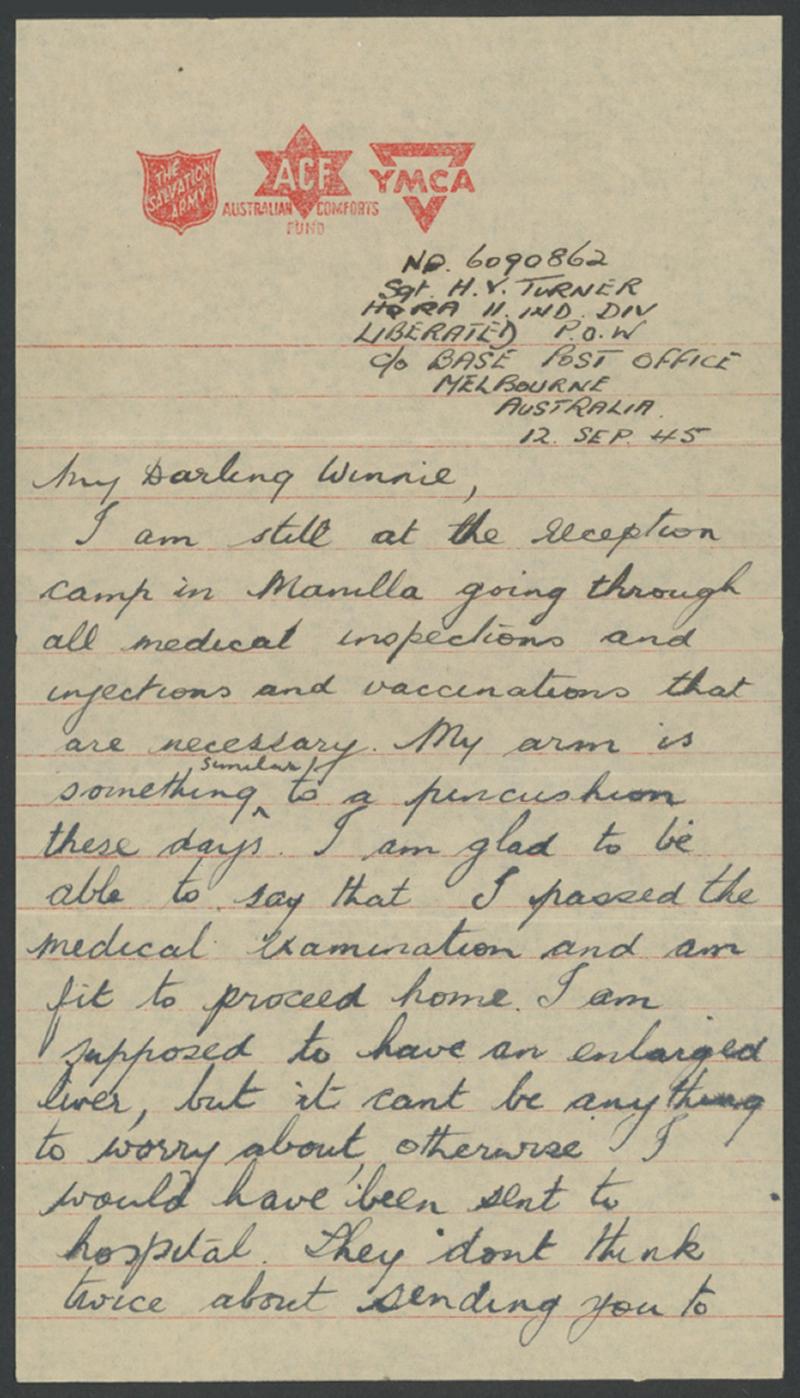 THE
SALVATION
ARMY
ACF
AUSTRALIAN COMFORTS
FUND
YMCA
NO. 6090862
Sgt. H.V. TURNER
HQRA 11. IND. DIV
LIBERATED P.O.W
c/o BASE POST OFFICE
MELBOURNE
AUSTRALIA.
12. SEP. 45
My Darling Winnie,
I am still at the reception
camp in Manilla going through
all medical inspections and
injections and vaccinations that
are necessary. My arm is
something similar to a pincushion
these days. I am glad to be
able to say that I passed the
medical examination and am
fit to proceed home. I am
supposed to have an enlarged
liver, but it cant be anything
to worry about, otherwise I
would have been sent to
hospital. They dont think
twice about sending you to